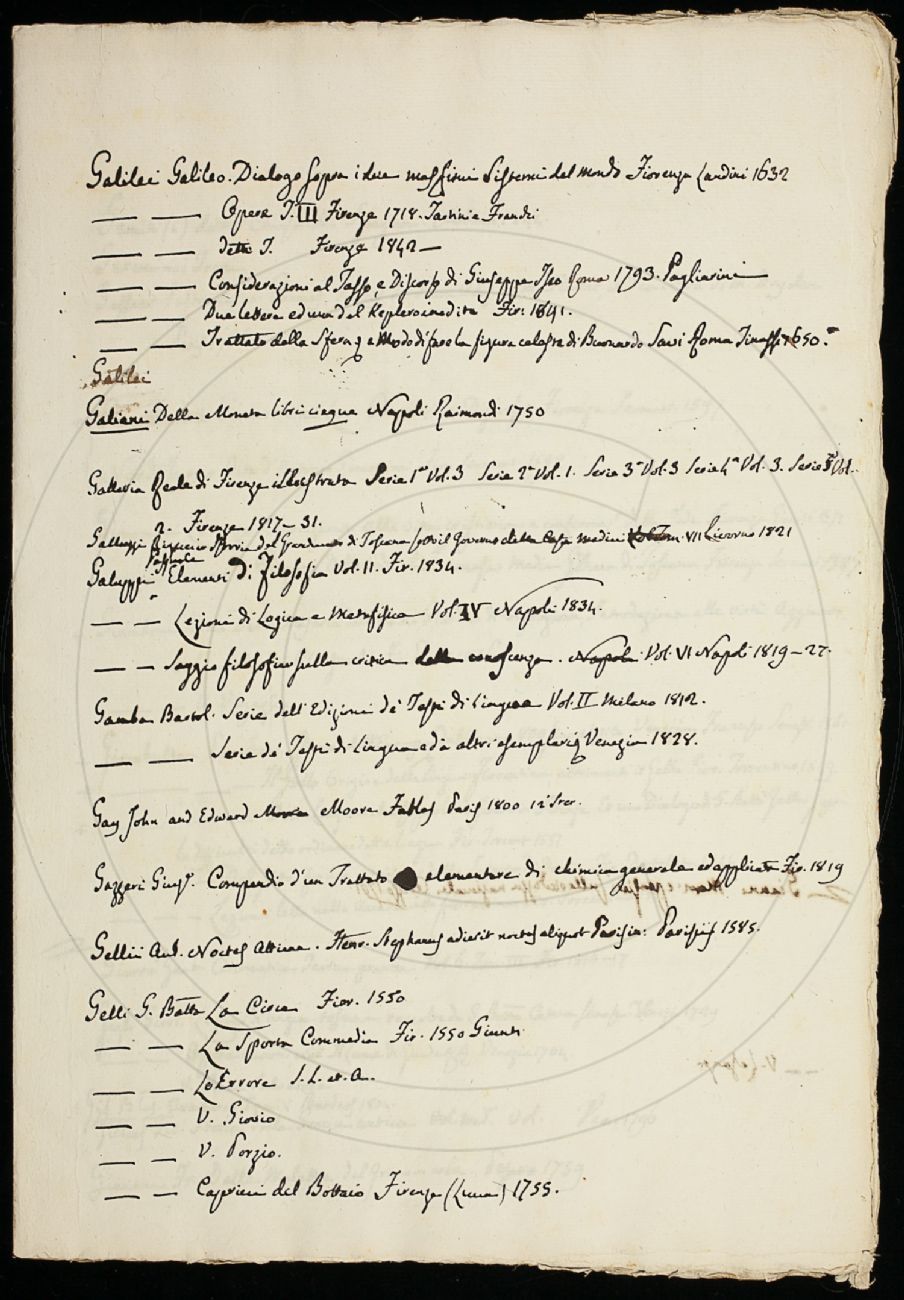 Galilei Galileo. Dialogo sopra i due massimi Sistemi del mondo Fiorenza Landini 1632
— — Opere T. III Firenze 1718. Tartini e Franchi
— — dette T. Firenze 1842 —
— — Considerazioni al Tasso, e Discorso di Giuseppe Iseo Roma 1793. Pagliarini
— — Due lettere ed una del Keplero inedite Fir: 1841.
— — Trattato della Sfera, e Modo di fare la figura celeste di Buonardo Savi Roma 1650.
Galilei
Galiani Della Moneta libri cinque Napoli Raimondi 1750
Galleria Reale di Firenze illustrata Serie 1ª Vol. 3 Serie 2ª Vol. 1. Serie 3ª Vol. 3 Serie 4ª Vol. 3. Serie 5ª Vol.
2. Firenze 1817–31.
Galluzzi Riguccio Storia del Granducato di Toscana sotto il Governo della Casa Medici VII Livorno 1821
Pasquale
Galuppi Elementi di Filosofia Vol. II. Fir. 1834.
— — Lezioni di Logica e Metafisica Vol. IV Napoli 1834.
— — Saggio filosofico sulla critica della conoscenza. Napoli Vol. VI Napoli 1819–27.
Gamba Bartol. Serie dell'Edizioni de' Testi di Lingua Vol. II Milano 1812.
— — Serie de' Testi di Lingua ed altri esemplari Venezia 1828.
Gay John and Edward Moore Fables Paris 1800 Ster.
Gazzeri Gius. Compendio d'un Trattato elementare di chimica generale ed applicata Fir. 1819
Gellii Aul. Noctes Atticae. Henr. Stephanus adiecit noctes aliquot Parisin: Parisiis 1585.
Gelli G. Batta La Circe Fior. 1550
— — La Sporta Commedia Fir. 1550 Giunti
— — Lo Errore S. L. et. A.
— — V. Giovio
— — V. Porzio.
— — Capricci del Bottaio Firenze (Lucca) 1755.